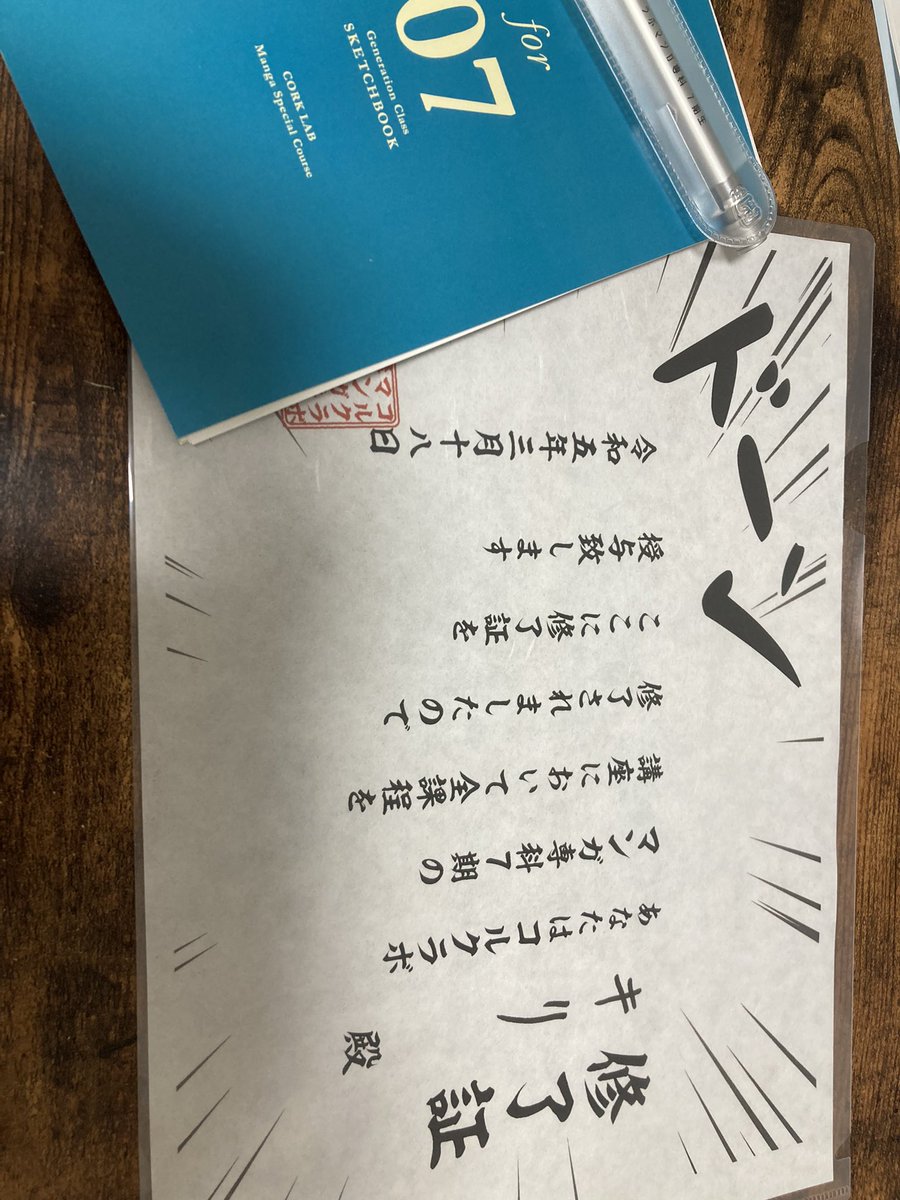 for
07
Generation Class
SKETCHBOOK
CORK LAB
Manga Special Course
マンガ専科 7期生
ドーン
修了証
キリ
殿
あなたはコルクラボ
マンガ専科7期の
講座において全課程を
修了されましたので
ここに修了証を
授与致します
令和五年三月十八日
コルクラボ
マンガ